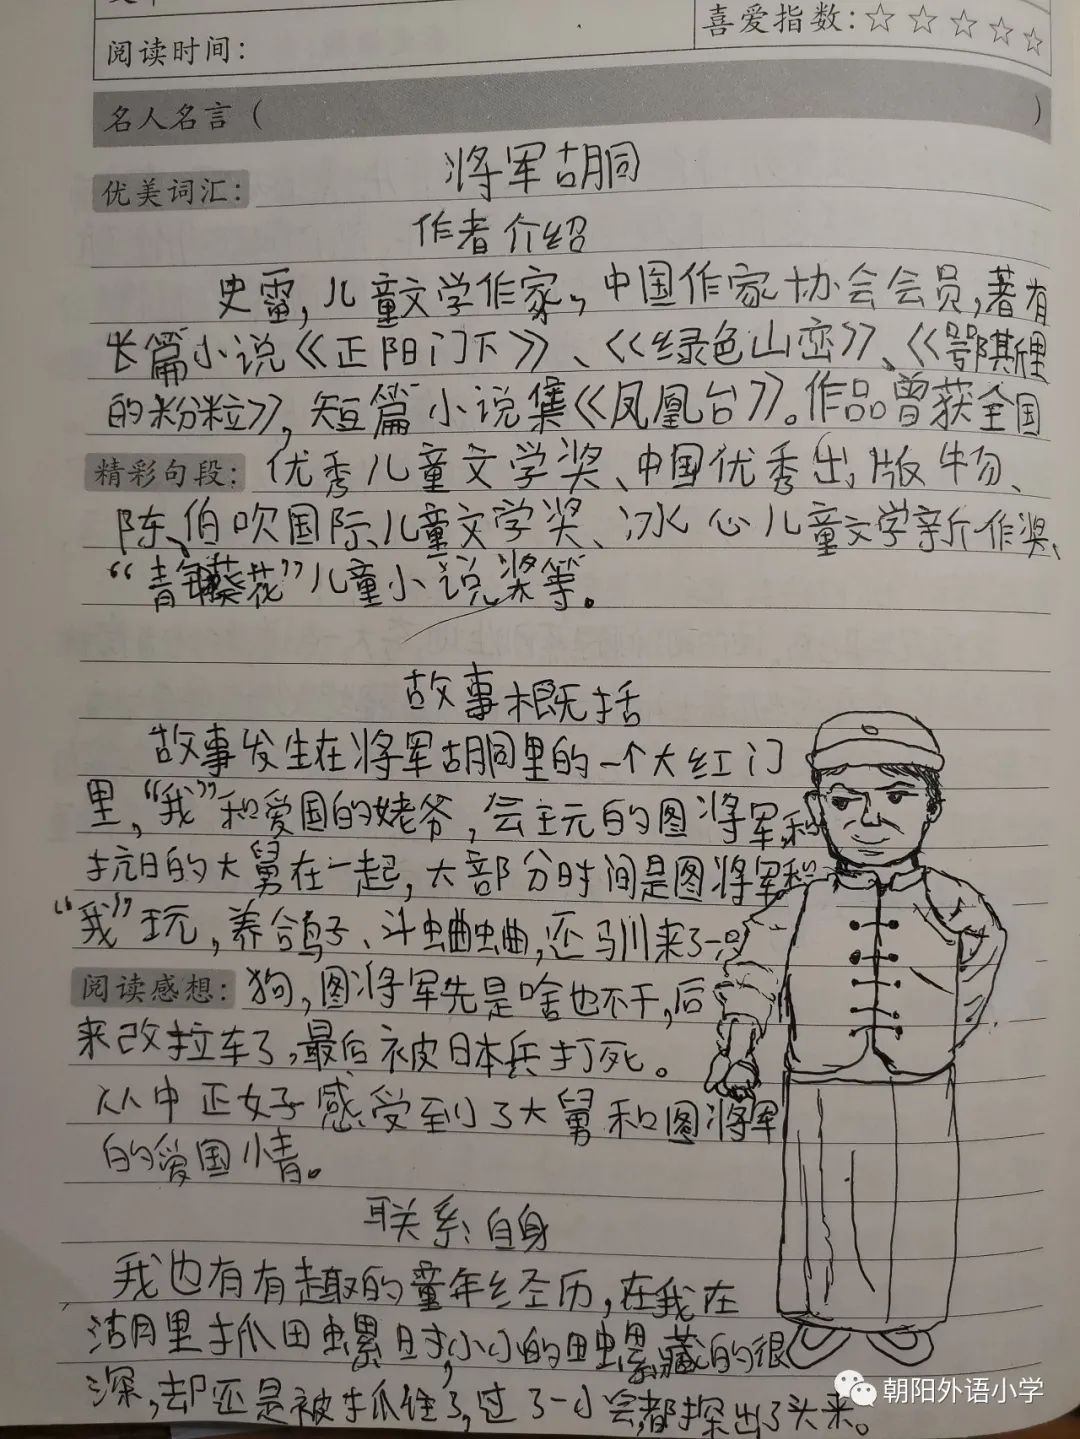 喜爱指数:☆ ☆ ☆ ☆ ☆
阅读时间:
名人名言(                    )
将军胡同
优美词汇:
作者介绍
史雷,儿童文学作家,中国作家协会会员,著有
长篇小说《正阳门下》、《绿色山峦》、《鄂斯里
的粉粒》,短篇小说集《凤凰台》。作品曾获全国
精彩句段: 优秀儿童文学奖、中国优秀出版物、
陈伯吹国际儿童文学奖、冰心儿童文学新作奖、
“青年葵花”儿童小说奖等。
故事概括
故事发生在将军胡同里的一个大红门
里,“我”和爱国的姥爷,会玩的图将军,和
抗日的大舅在一起,大部分时间是图将军和
“我”玩,养鸽子、斗蛐蛐,还驯来了一只
阅读感想: 狗,图将军先是啥也不干,后
来改拉车了,最后被日本兵打死。
从中正好感受到了大舅和图将军
的爱国情。
联系自身
我也有有趣的童年经历,在我在
沽月里抓田螺时,小小的田螺藏的很
深,却还是被抓住了,过了一小会都探出了头来。
朝阳外语小学